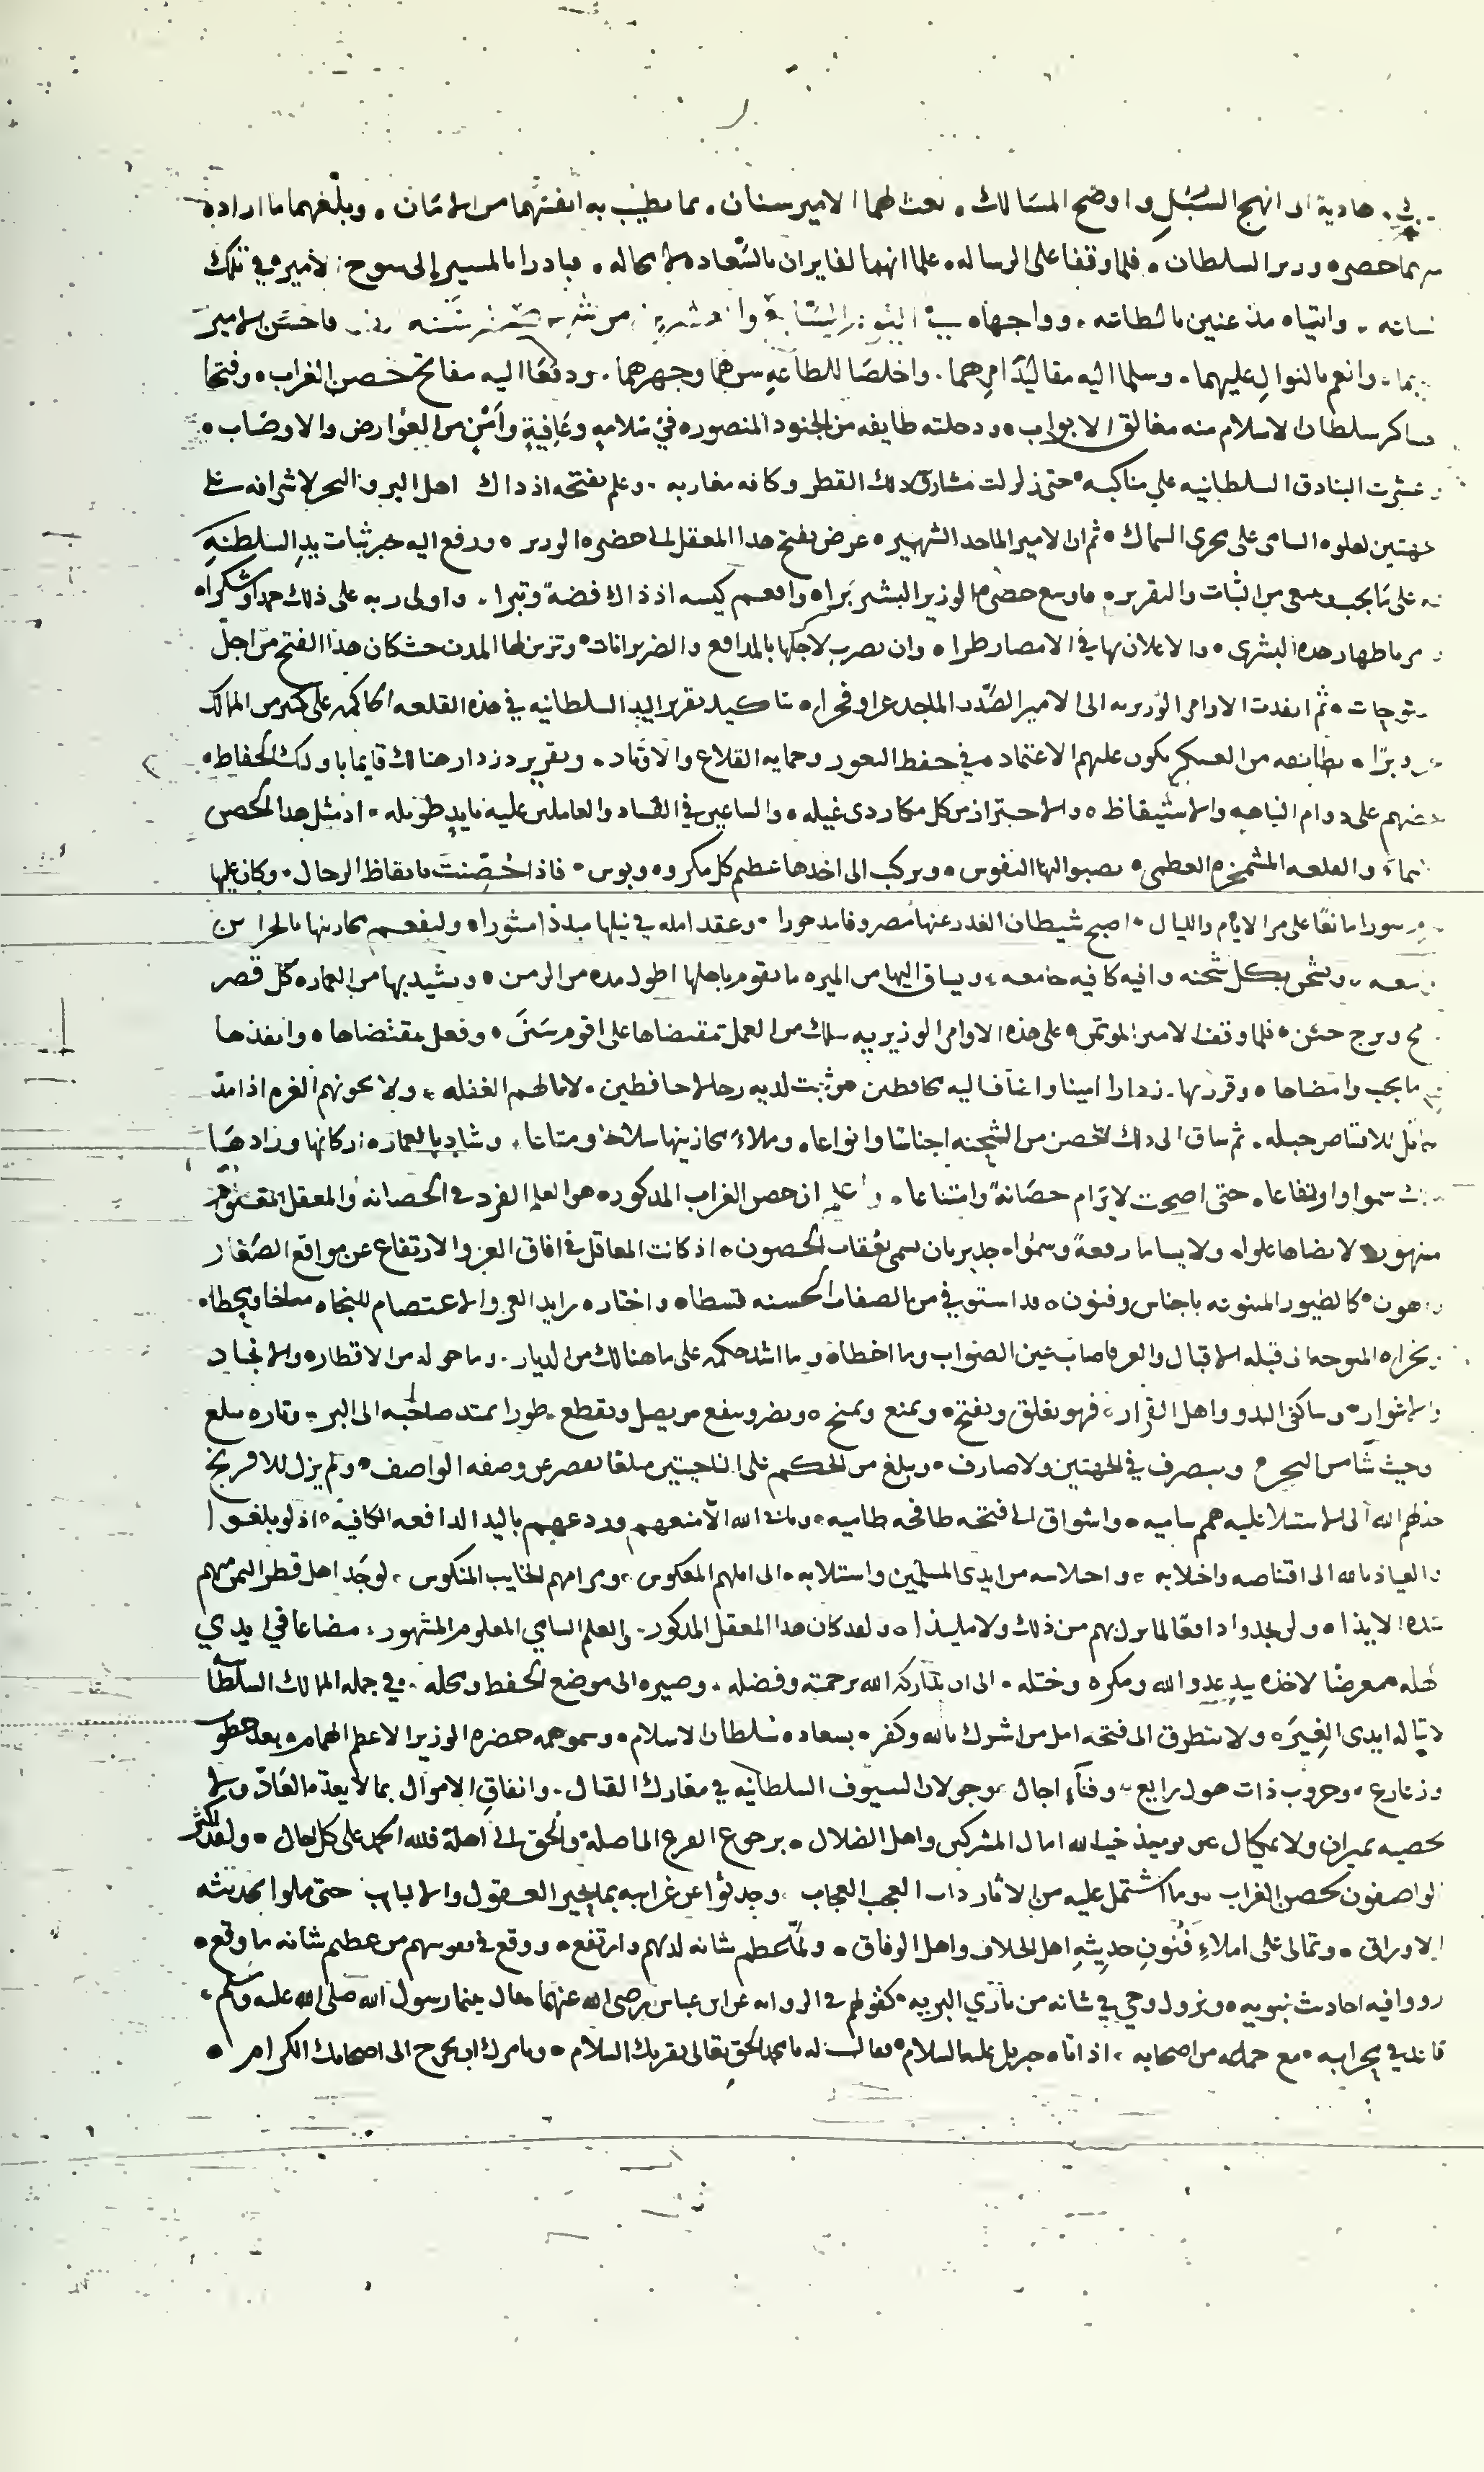 هادية الى انهج السبل واوضح المسالك . بعث لهما الامير سنان . بما يطيب به انفسهما من الامان . وبلغهما ما اراده
بما حضره وزير السلطان . فلما وقفا على الرساله . علما انهما لفايزان بالسعاده لا محاله . فبادرا بالمسير الى سوح الامير في تلك
واتياه مذعنين بالطاعه . وواجهاه في اليوم السابع والعشرين من شهر سنه فاحسن الامير
وانعم بالنوال عليهما . وسلما اليه مقاليد امرهما . واخلصا للطاعه سرهما وجهرهما . ودفعا اليه مفاتح حصن الغراب . وفتحا
سلطان الاسلام منه مغالق الابواب . ودخلته طايفه من الجنود المنصوره في سلامه وعافية وامن من العوارض والاوصاب .
البنادق السلطانيه على مناكبه . حتى زلزلت مشارق ذلك القطر وكافه مغاربه . وعلم بفتحه اذ ذاك اهل البر والبحر لاشرافه على
لعلوه السامى على مجرى السماك . ثم ان الامير الماجد الشهير . عرض بفتح هذا المعقل الى حضرة الوزير . ورفع اليه خبر ثبات يد السلطنه
على ما يجب من الثبات والتقرير . فاوسع حضرة الوزير البشير برا . وافعم كيسه اذ ذاك فضة وتبرا . واولى ربه على ذلك حمدا وشكرا .
باظهار هذه البشرى . والاعلان بها في الامصار طرا . وان يضرب لاجلها بالمدافع والضربزانات . وتزين لها المدن حيث كان هذا الفتح من اجل
ثم انفذت الاوامر الوزيريه الى الامير الصدر الماجد عزا وفخرا . بتاكيد تقرير اليد السلطانيه في هذه القلعه الحاكمه على كثير من الممالك
وبرا . بطايفه من العسكر يكون عليهم الاعتماد . في حفظ الثغور وحمايه القلاع والاوتاد . وتقرير دزدار هنالك قايما باولئك الحفاظ .
على دوام النباهه والاستيقاظ . والاحتراز من كل مكار ذى غيله . والساعين في الفساد والعاملين عليه بايد طويله . اذ مثل هذا الحصن
والقلعه المشمخره العظمى . تصبو اليها النفوس . ويركب الى اخذها عظم كل مكروه وبوس . فاذا احصنت بايقاظ الرجال . وكان عليها
سورا مانعا على مر الايام والليال . اصبح شيطان الغدر عنها مصروفا مدحورا . وعقد امله في نيلها مبذدا منثورا . وليفعم مخازينها بالخزائن
ويشحن بكل شحنه وافيه كافيه جامعه . ويساق اليها من الميره ما يقوم باهلها اطول مده من الزمن . ويشيد بها من العماره كل قصر
وبرج حسن . فلما وقف الامير الموتمن . على هذه الاوامر الوزيريه سلك من العمل بمقتضاها على اقوم سنن . وفعل مقتضاها . وانفذها
ما يجب وامضاها . وقرر بها دزدارا امينا واضاف اليه محافظين ممن ثبت لديه رجالا حافظين . لا تخالطهم الغفله . ولا يخونهم العزم اذا مد
للاقتناص حبله . ثم ساق الى ذلك الحصن من الشحنه اجناسا وانواعا . وملاء مخازينها سلاحا ومتاعا . وشاد بالعماره اركانها وزادها
سموا وارتفاعا . حتى اصبحت لا ترام حصانة وامتناعا . واعلم ان حصن الغراب المذكور . هو العلم الفرد في الحصانه والمعقل
لا يضاها علوا . ولا يساما رفعة وسموا . جدير بان يسمى بعقاب الحصون . اذ كانت المعاقل في افاق العز والارتفاع عن مواقع الصغار
كالطيور المبثوثه باجناس وفنون . قد استوفى من الصفات الحسنه قسطا . واختاره رايد العز والاعتصام للنجاه
قبله الاقبال والعز فاصاب عين الصواب وما اخطا . وما اشد حكمه على ما هنالك من الديار . وما حوله من الاقطار والانجاد
والاغوار . وساكنى البدو واهل القرار . فهو يغلق ويفتح . ويمنع ويمنح . ويضر وينفع ويصل ويقطع . طورا يمتد صاحبه الى البر . وتاره يبلغ
وحيث شا من البحر . ويتصرف في الجهتين ولا صارف . ويبلغ من الحكم على الناحيتين مبلغا يقصر عن وصفه الواصف . ولم يزل للافرنج
خذلهم الله الى الاستيلا عليه همم ساميه . واشواق الى فتحه طافحه طاميه . ويابى الله الا منعهم وردعهم باليد الدافعه الكافيه . اذ لو بلغوا
والعياذ بالله الى اقتناصه واخلابه . واختلاسه من ايدى المسلمين واستلابه . الى املهم المعكوس . ومرامهم الخايب المنكوس . لوجد اهل قطر اليمن منهم
شدة الايذا . ولم يجدوا دافعا لما نزل بهم من ذلك ولا مليذا . ولقد كان هذا المعقل المذكور . والعلم السامي المعلوم المشهور . مضاعا في ايدي
اهله معرضا لاخذه بيد عدو الله ومكره وختله . الى ان تداركه الله برحمته وفضله . وصيره الى موضع الحفظ ومحله . في جمله الممالك السلطا
لا تناله ايدى الغير . ولا يتطرق الى فتحه امل من اشرك بالله وكفر . بسعاده سلطان الاسلام . وسمو همه حضرة الوزير الاعظم الهمام . بعد خطوب
وزعازع . وحروب ذات هول رايع . وفناء اجال بجولان السيوف السلطانيه في معارك القتال . وانفاق الاموال بما لا يعده العاد ولا
يحصيه بميزان ولا مكيال خيب الله امال المشركين واهل الضلال . برجوع الفرع الى اصله . والحق الى اهله فلله الحمد على كل حال . ولقد اكثر
الواصفون لحصن الغراب . وما اشتمل عليه من الاثار ذات العجب العجاب . وحدثوا عن غرايبه بما يحير العقول والالباب . حتى ملوا بحديثه
الاوراق . وتمالى على املاء فنون حديثه اهل الخلاف واهل الوفاق . ولما عظم شانه لديهم وارتفع . ووقع في نفوسهم من عظيم شانه ما وقع .
رووا فيه احاديث نبويه . ونزول وحي في شانه من بارى البريه . كقولهم في الروايه عن ابن عباس رضى الله عنهما قال بينما رسول الله صلى الله عليه وسلم .
قاعد في محرابه . مع جماعه من اصحابه . اذ اتاه جبريل عليه السلام . فقال له يا محمد الحق تعالى يقريك السلام . ويامرك ان تخرج الى اصحابك الكرام .